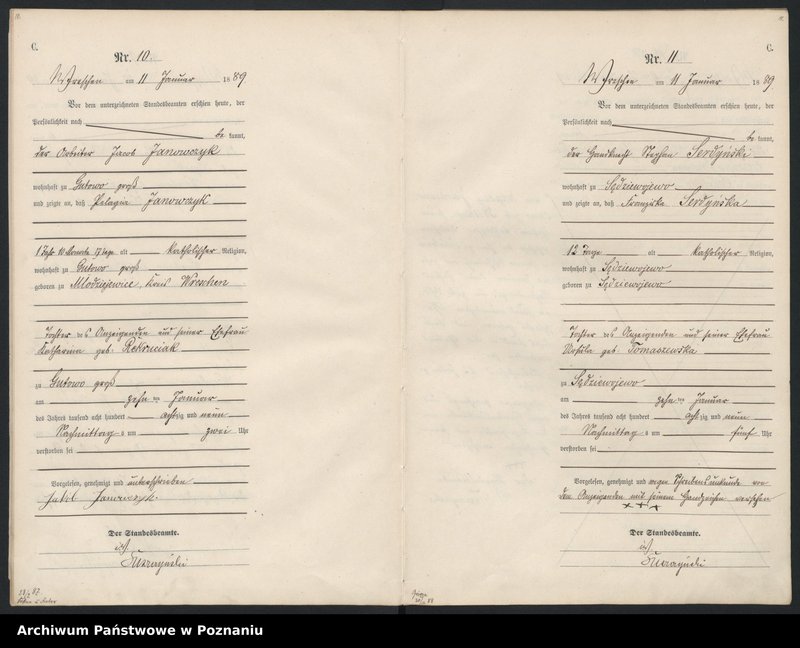 C.
Nr. 10.
Wreschen am 11 Januar 1889
Vor dem unterzeichneten Standesbeamten erschien heute, der
Persönlichkeit nach
be kannt,
der Arbeiter Jacob Janowczyk
wohnhaft zu Gutowo groß
und zeigte an, daß Pelagia Janowczyk
1 Jahr 10 Monate 17 Tage alt katholischer Religion,
wohnhaft zu Gutowo groß
geboren zu Mlodziejewice, Kreis Wreschen
Tochter des Anzeigenden und seiner Ehefrau
Katharina geb.
zu Gutowo groß
am zehn ten Januar
des Jahres tausend acht hundert achtzig und neun
Nachmittag s um zwei Uhr
verstorben sei
Vorgelesen, genehmigt und unterschrieben
Der Standesbeamte.
C.
Nr. 11
Wreschen am 11 Januar 1889.
Vor dem unterzeichneten Standesbeamten erschien heute, der
Persönlichkeit nach
be kannt,
der Stephan Serdyński
wohnhaft zu Sędziewojewo
und zeigte an, daß Franziska Serdyńska
12 Tage alt katholischer Religion,
wohnhaft zu Sędziewojewo
geboren zu Sędziewojewo
Tochter des Anzeigenden und seiner Ehefrau
geb. Tomaszewska
zu Sędziewojewo
am zehn ten Januar
des Jahres tausend acht hundert achtzig und neun
Nachmittag s um fünf Uhr
verstorben sei
Vorgelesen, genehmigt und wegen Schreibensunkunde von
dem Anzeigenden mit seinem Handzeichen versehen
+++
Der Standesbeamte.
Archiwum Państwowe w Poznaniu